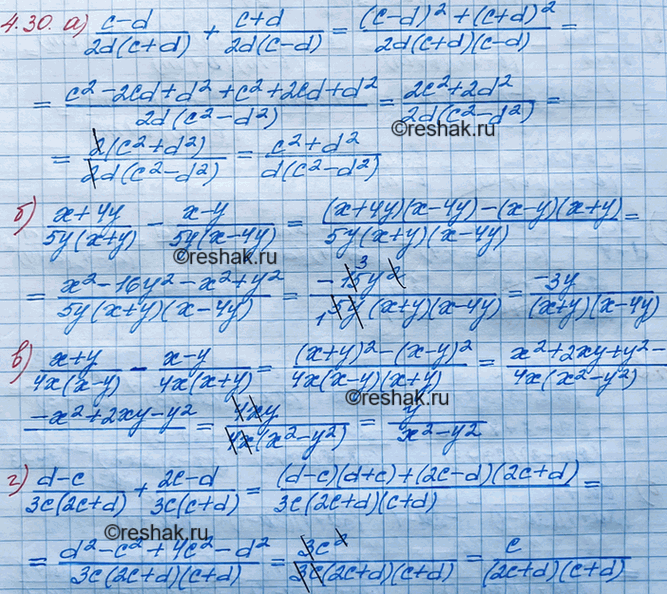 4.30. а) (c-d)/(2d(c+d)) + (c+d)/(2d(c-d)) = ((c-d)²+(c+d)²)/(2d(c+d)(c-d)) =
= (c²-2cd+d²+c²+2cd+d²)/(2d(c²-d²)) = (2c²+2d²)/(2d(c²-d²)) =
©reshak.ru
= 2(c²+d²)/(2d(c²-d²)) = (c²+d²)/(d(c²-d²))
б) (x+4y)/(5y(x+y)) - (x-y)/(5y(x-4y)) = ((x+4y)(x-4y)-(x-y)(x+y))/(5y(x+y)(x-4y)) =
©reshak.ru
= (x²-16y²-x²+y²)/(5y(x+y)(x-4y)) = (-15y²)/(5y(x+y)(x-4y)) = (-3y)/((x+y)(x-4y))
в) (x+y)/(4x(x-y)) - (x-y)/(4x(x+y)) = ((x+y)²-(x-y)²)/(4x(x-y)(x+y)) = (x²+2xy+y²-)/(4x(x²-y²))
©reshak.ru
-x²+2xy-y² = 4xy/(4x(x²-y²)) = y/(x²-y²)
г) (d-c)/(3c(2c+d)) + (2c-d)/(3c(c+d)) = ((d-c)(d+c)+(2c-d)(2c+d))/(3c(2c+d)(c+d)) =
©reshak.ru
= (d²-c²+4c²-d²)/(3c(2c+d)(c+d)) = 3c²/(3c(2c+d)(c+d)) = c/((2c+d)(c+d))